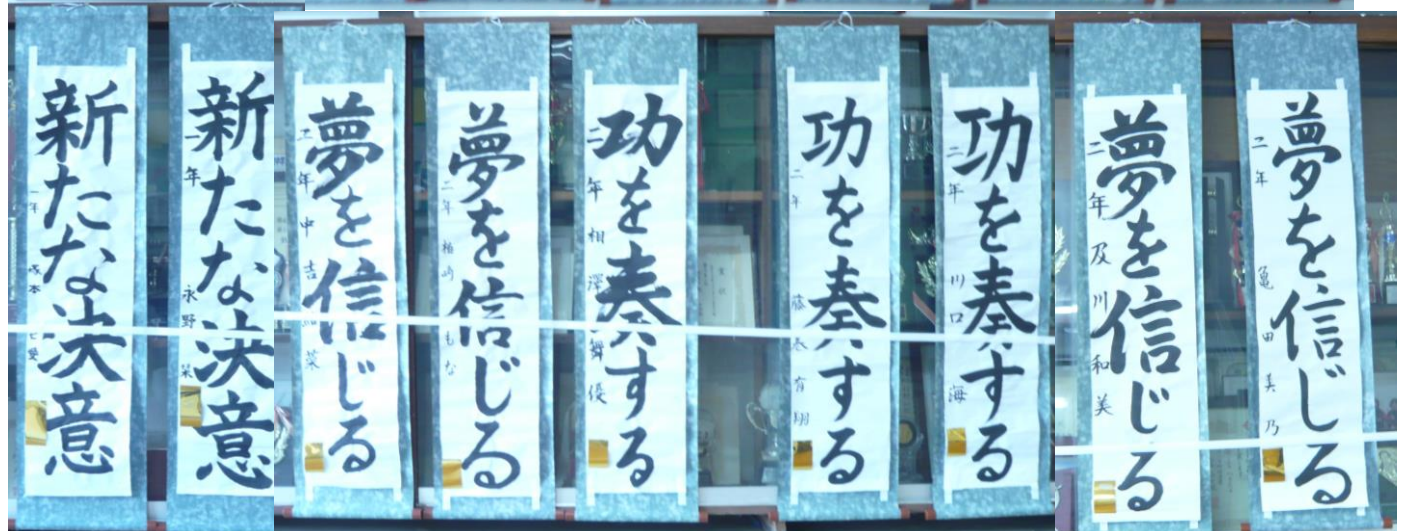 新たな決意
一年 塚本
新たな決意
一年 永野
夢を信じる
二年 中吉 菜
夢を信じる
二年 柏崎 もな
功を奏する
二年 相澤舞優
功を奏する
二年 藤本 有翔
功を奏する
二年 川口 海
夢を信じる
二年 及川和美
夢を信じる
二年 亀田美乃